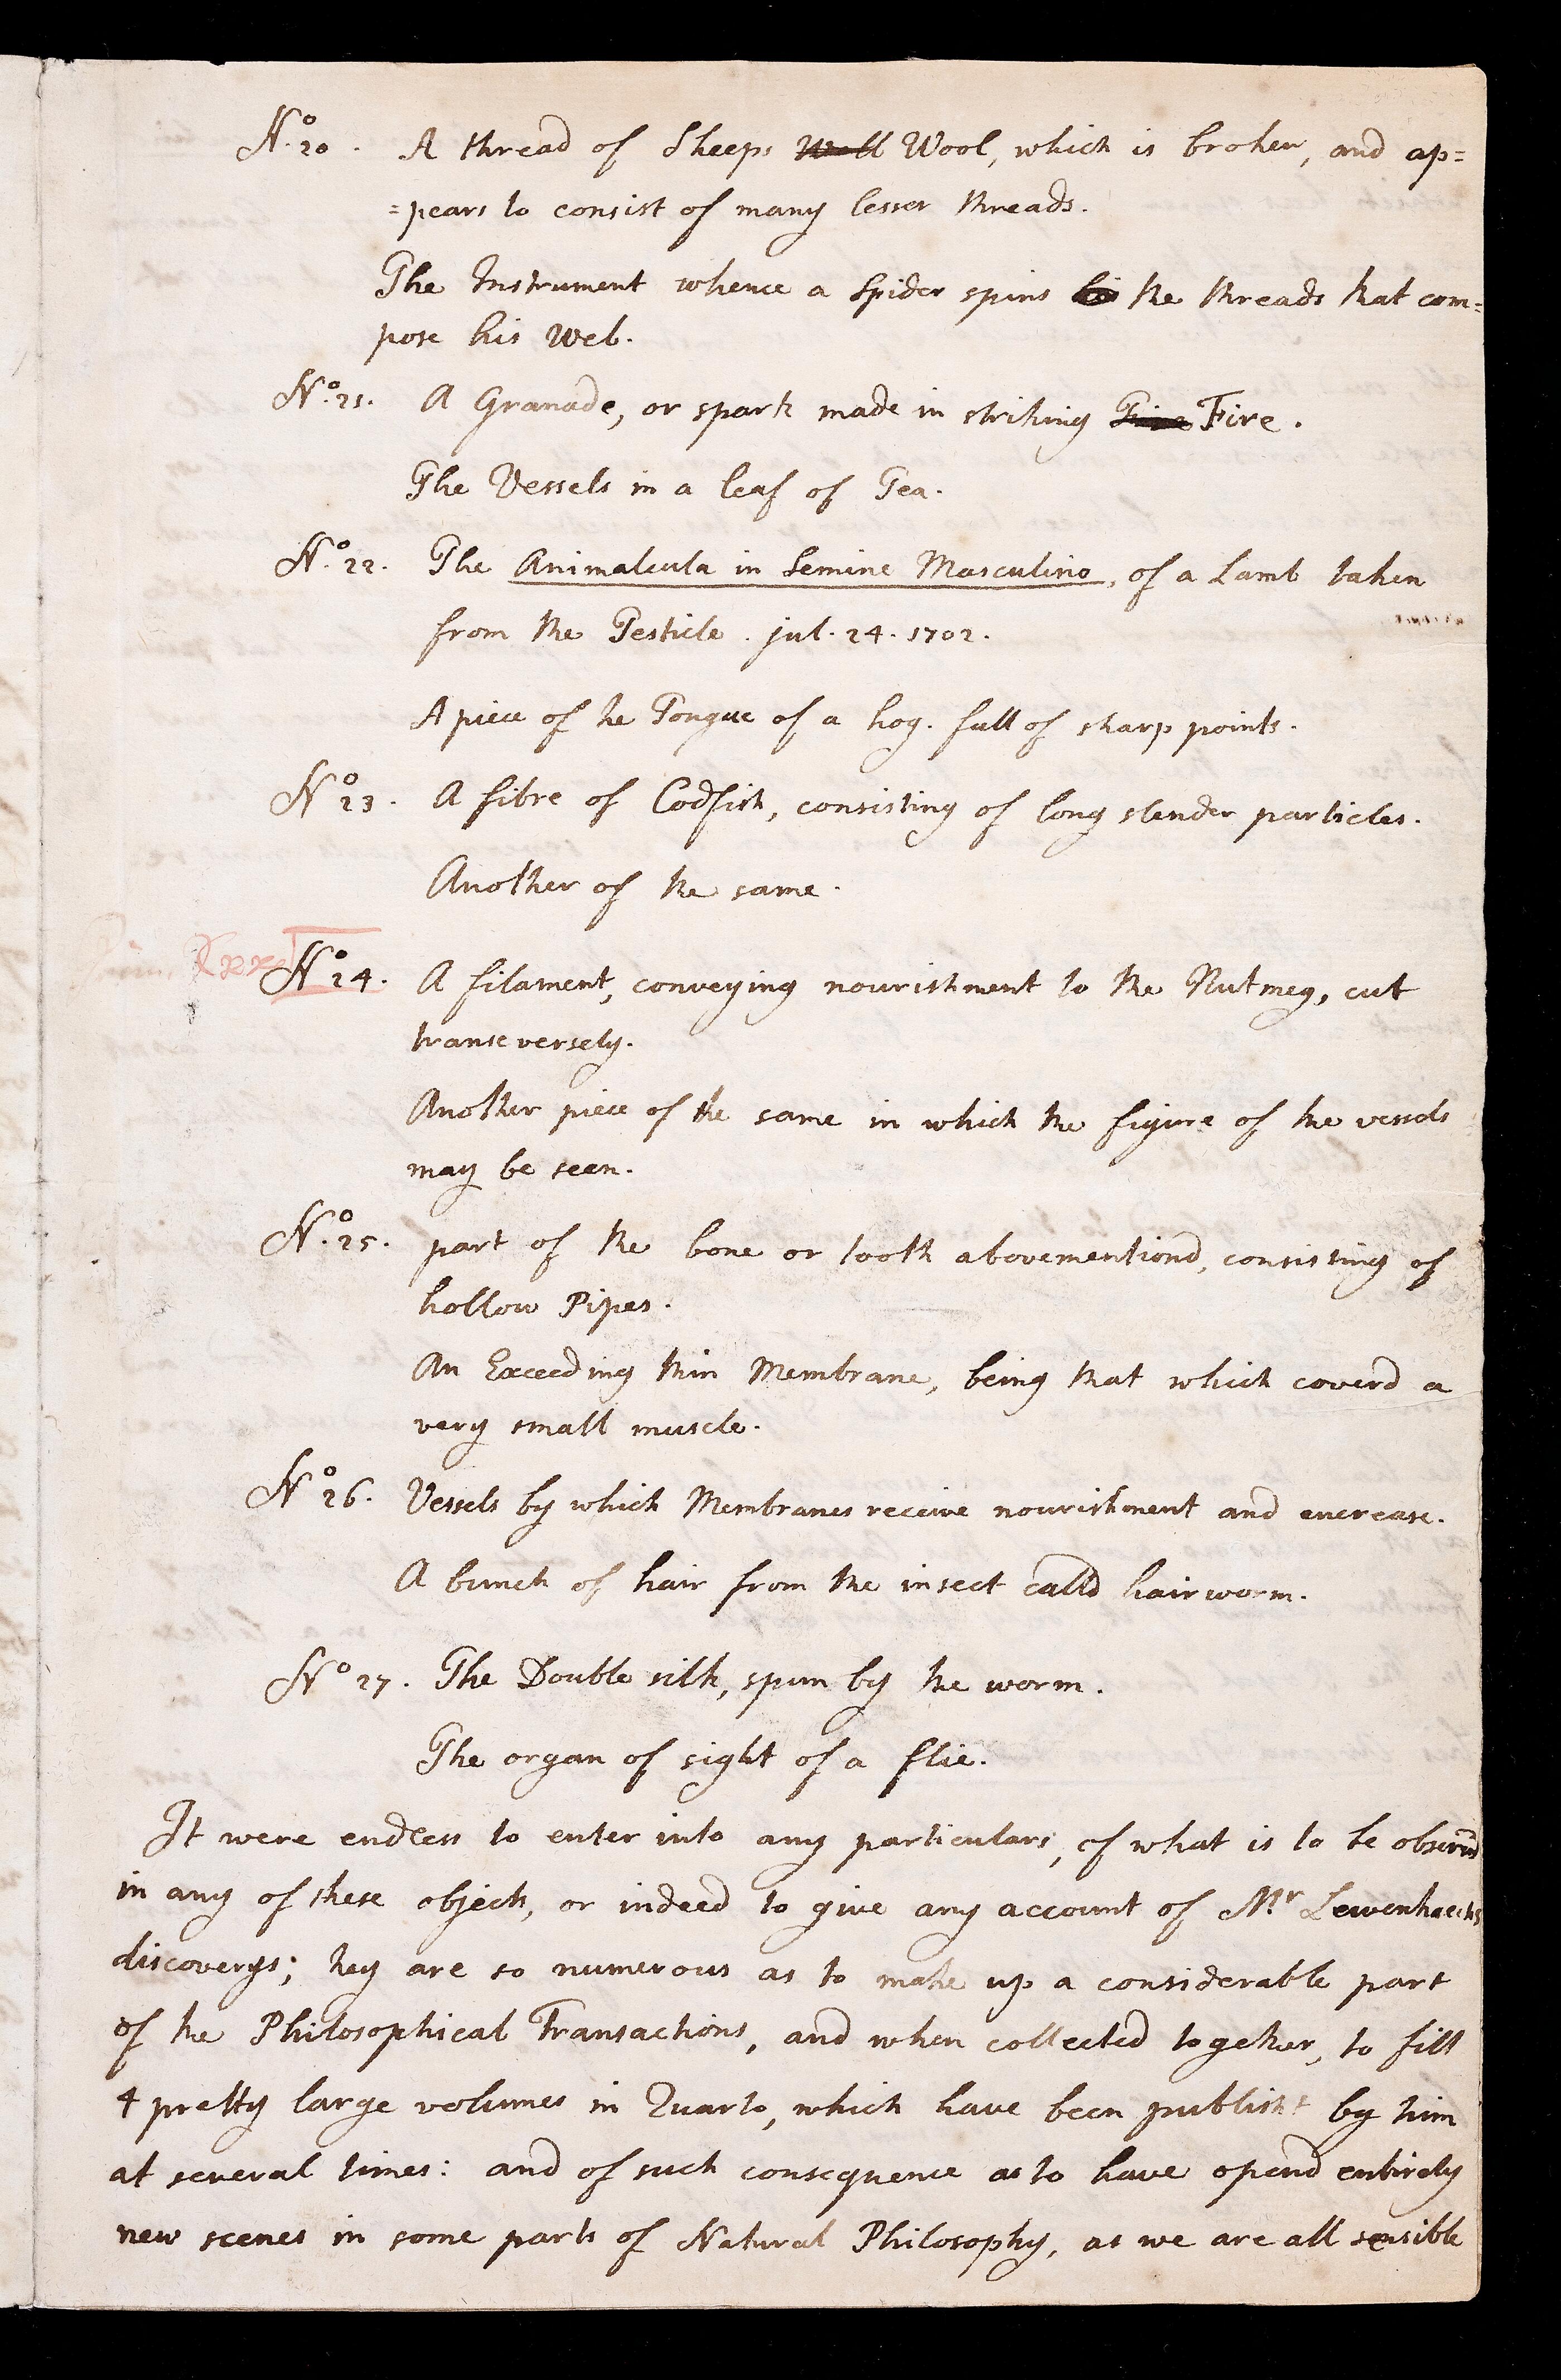 No. 20. A thread of Sheeps Woll Wool, which is broken, and ap=
=pears to consist of many lesser threads.
The Instrument whence a Spider spins his the threads that com=
pose his Web.
No. 21. A Granade, or spark made in striking Fire Fire.
The Vessels in a leaf of Tea.
No. 22. The Animalcula in Semine Masculino, of a Lamb taken
from the Testicle. jul. 24. 1702.
A piece of the Tongue of a hog. full of sharp points.
No 23. A fibre of Codfish, consisting of long slender particles.
Another of the same.
No 24. A filament, conveying nourishment to the Nutmeg, cut
transeversely.
Another piece of the same in which the figure of the vessels
may be seen.
No. 25. part of the bone or tooth abovementiond, consisting of
hollow Pipes.
An Exceeding thin Membrane, being that which coverd a
very small muscle.
No 26. Vessels by which Membranes receive nourishment and encrease.
A bunch of hair from the insect calld hairworm.
No 27. The Double silk, spun by the worm.
The organ of sight of a flie.
It were endless to enter into any particulars, of what is to be observd
in any of these objects, or indeed to give any account of Mr Lewenhoecks
discoverys; they are so numerous as to make up a considerable part
of the Philosophical Transactions, and when collected together, to fill
4 pretty large volumes in Quarto, which have been publisht by him
at several times: and of such consequence as to have opend entirely
new scenes in some parts of Natural Philosophy, as we are all sensible